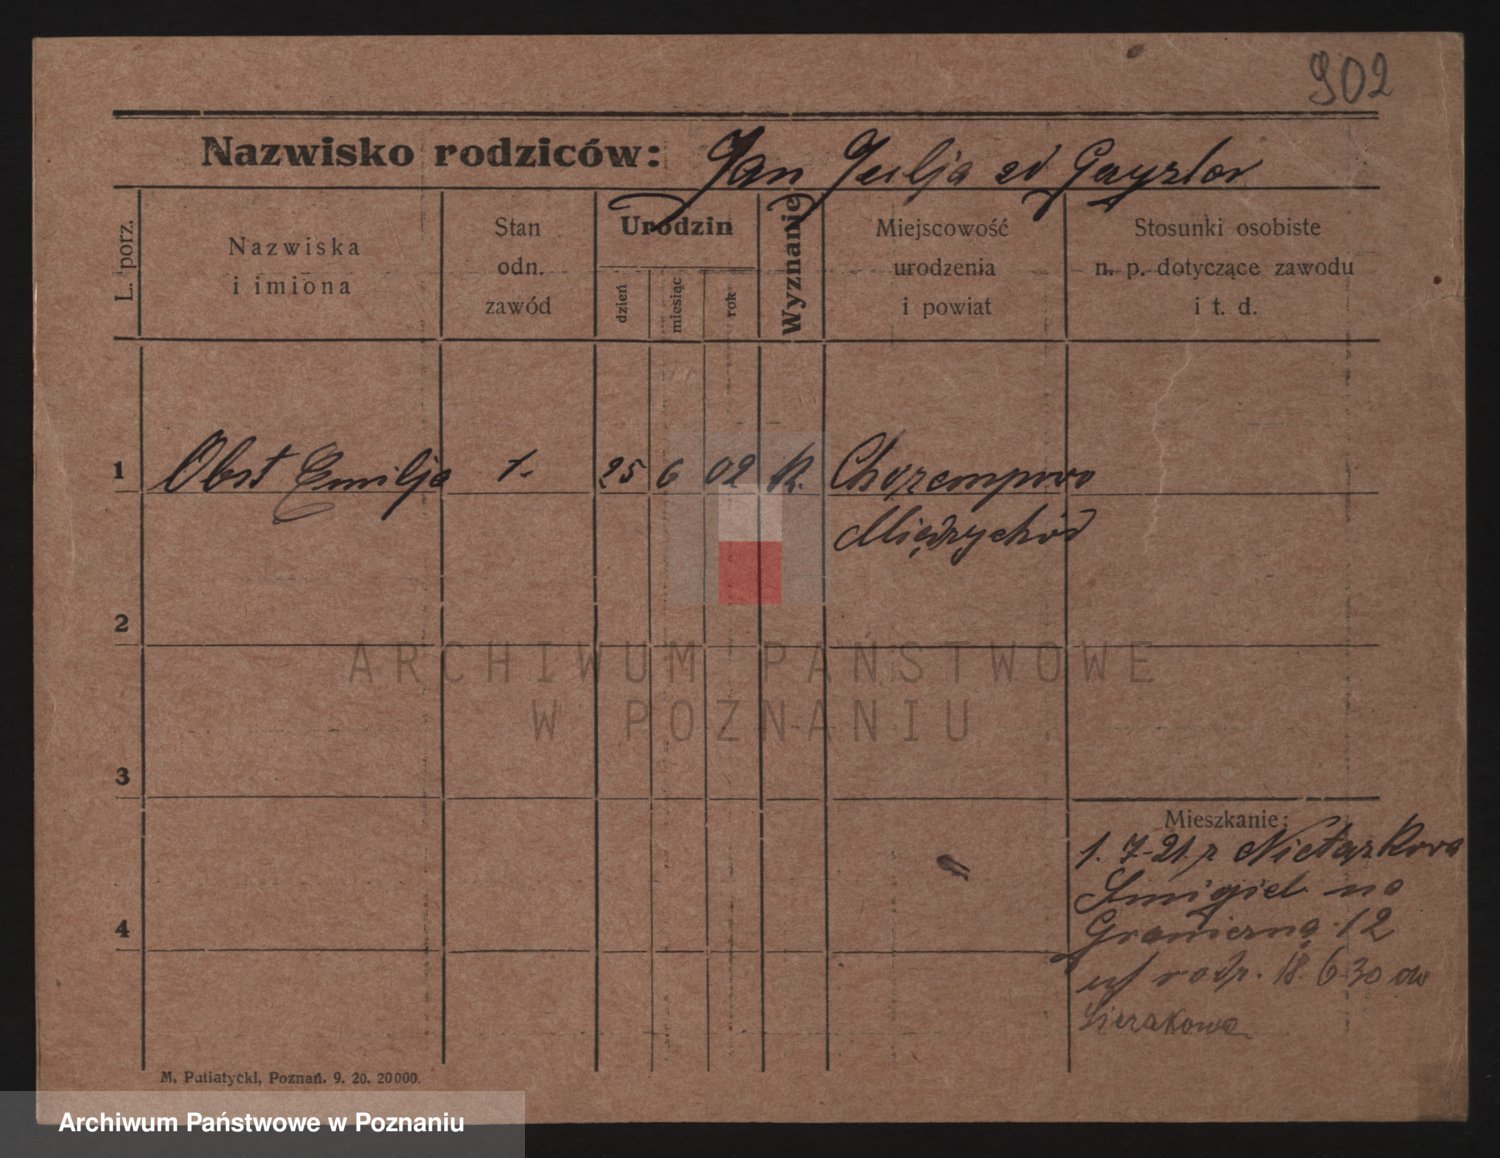 902
Nazwisko rodziców: Jan Julja zd Gayzlor
L. porz.
Nazwiska
i imiona
Stan
odn.
zawód
Urodzin
dzień
miesiąc
rok
Wyznanie
Miejscowość
urodzenia
i powiat
Stosunki osobiste
n. p. dotyczące zawodu
i t. d.
1 Obst Emilja 1. 25 6 02 K. Chorzempowo
Międzychód
2
ARCHIWUM PAŃSTWOWE
W POZNANIU
3
Mieszkanie:
1. 7-21. z Nietążkowa
Śmigiel na
4 Graniczną 12
18. 6-30 do
Sierakowa
M. Putiatycki, Poznań. 9. 20. 20000.
Archiwum Państwowe w Poznaniu